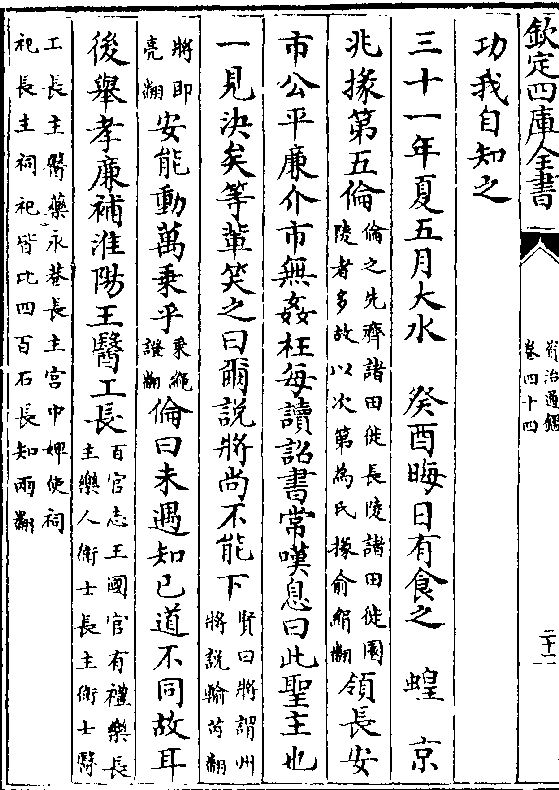 欽定四庫全書
資治通鑑
卷四十四
二十二
功我自知之
三十一年夏五月大水　癸酉晦日有食之　蝗　京
兆掾第五倫倫之先齊諸田徙長陵諸田徙園陵者多故以次第為氏掾俞絹翻領長安
市公平廉介市無姦枉每讀詔書常嘆息曰此聖主也
一見決矣等輩笑之曰爾說將尚不能下賢曰將謂州將說輸芮翻
將即亮翻安能動萬乘乎乘繩證翻倫曰未遇知已道不同故耳
後舉孝廉補淮陽王醫工長百官志王國官有禮樂長主樂人衛士長主衛士醫
工長主醫藥永巷長主宫中婢使祠祀長主祠祀皆比四百石長知兩翻